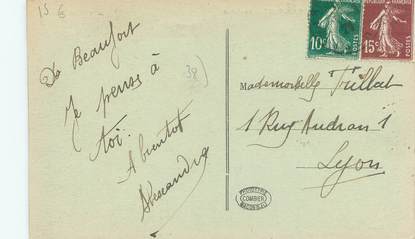 15 €
De Beaufort
Je pense à
toi.
A bientot
Alexandre
38
10c
POSTES
15c
POSTES
Mademoiselle Trillat
1 Rue Audran 1
Lyon
COMBIER
MACON